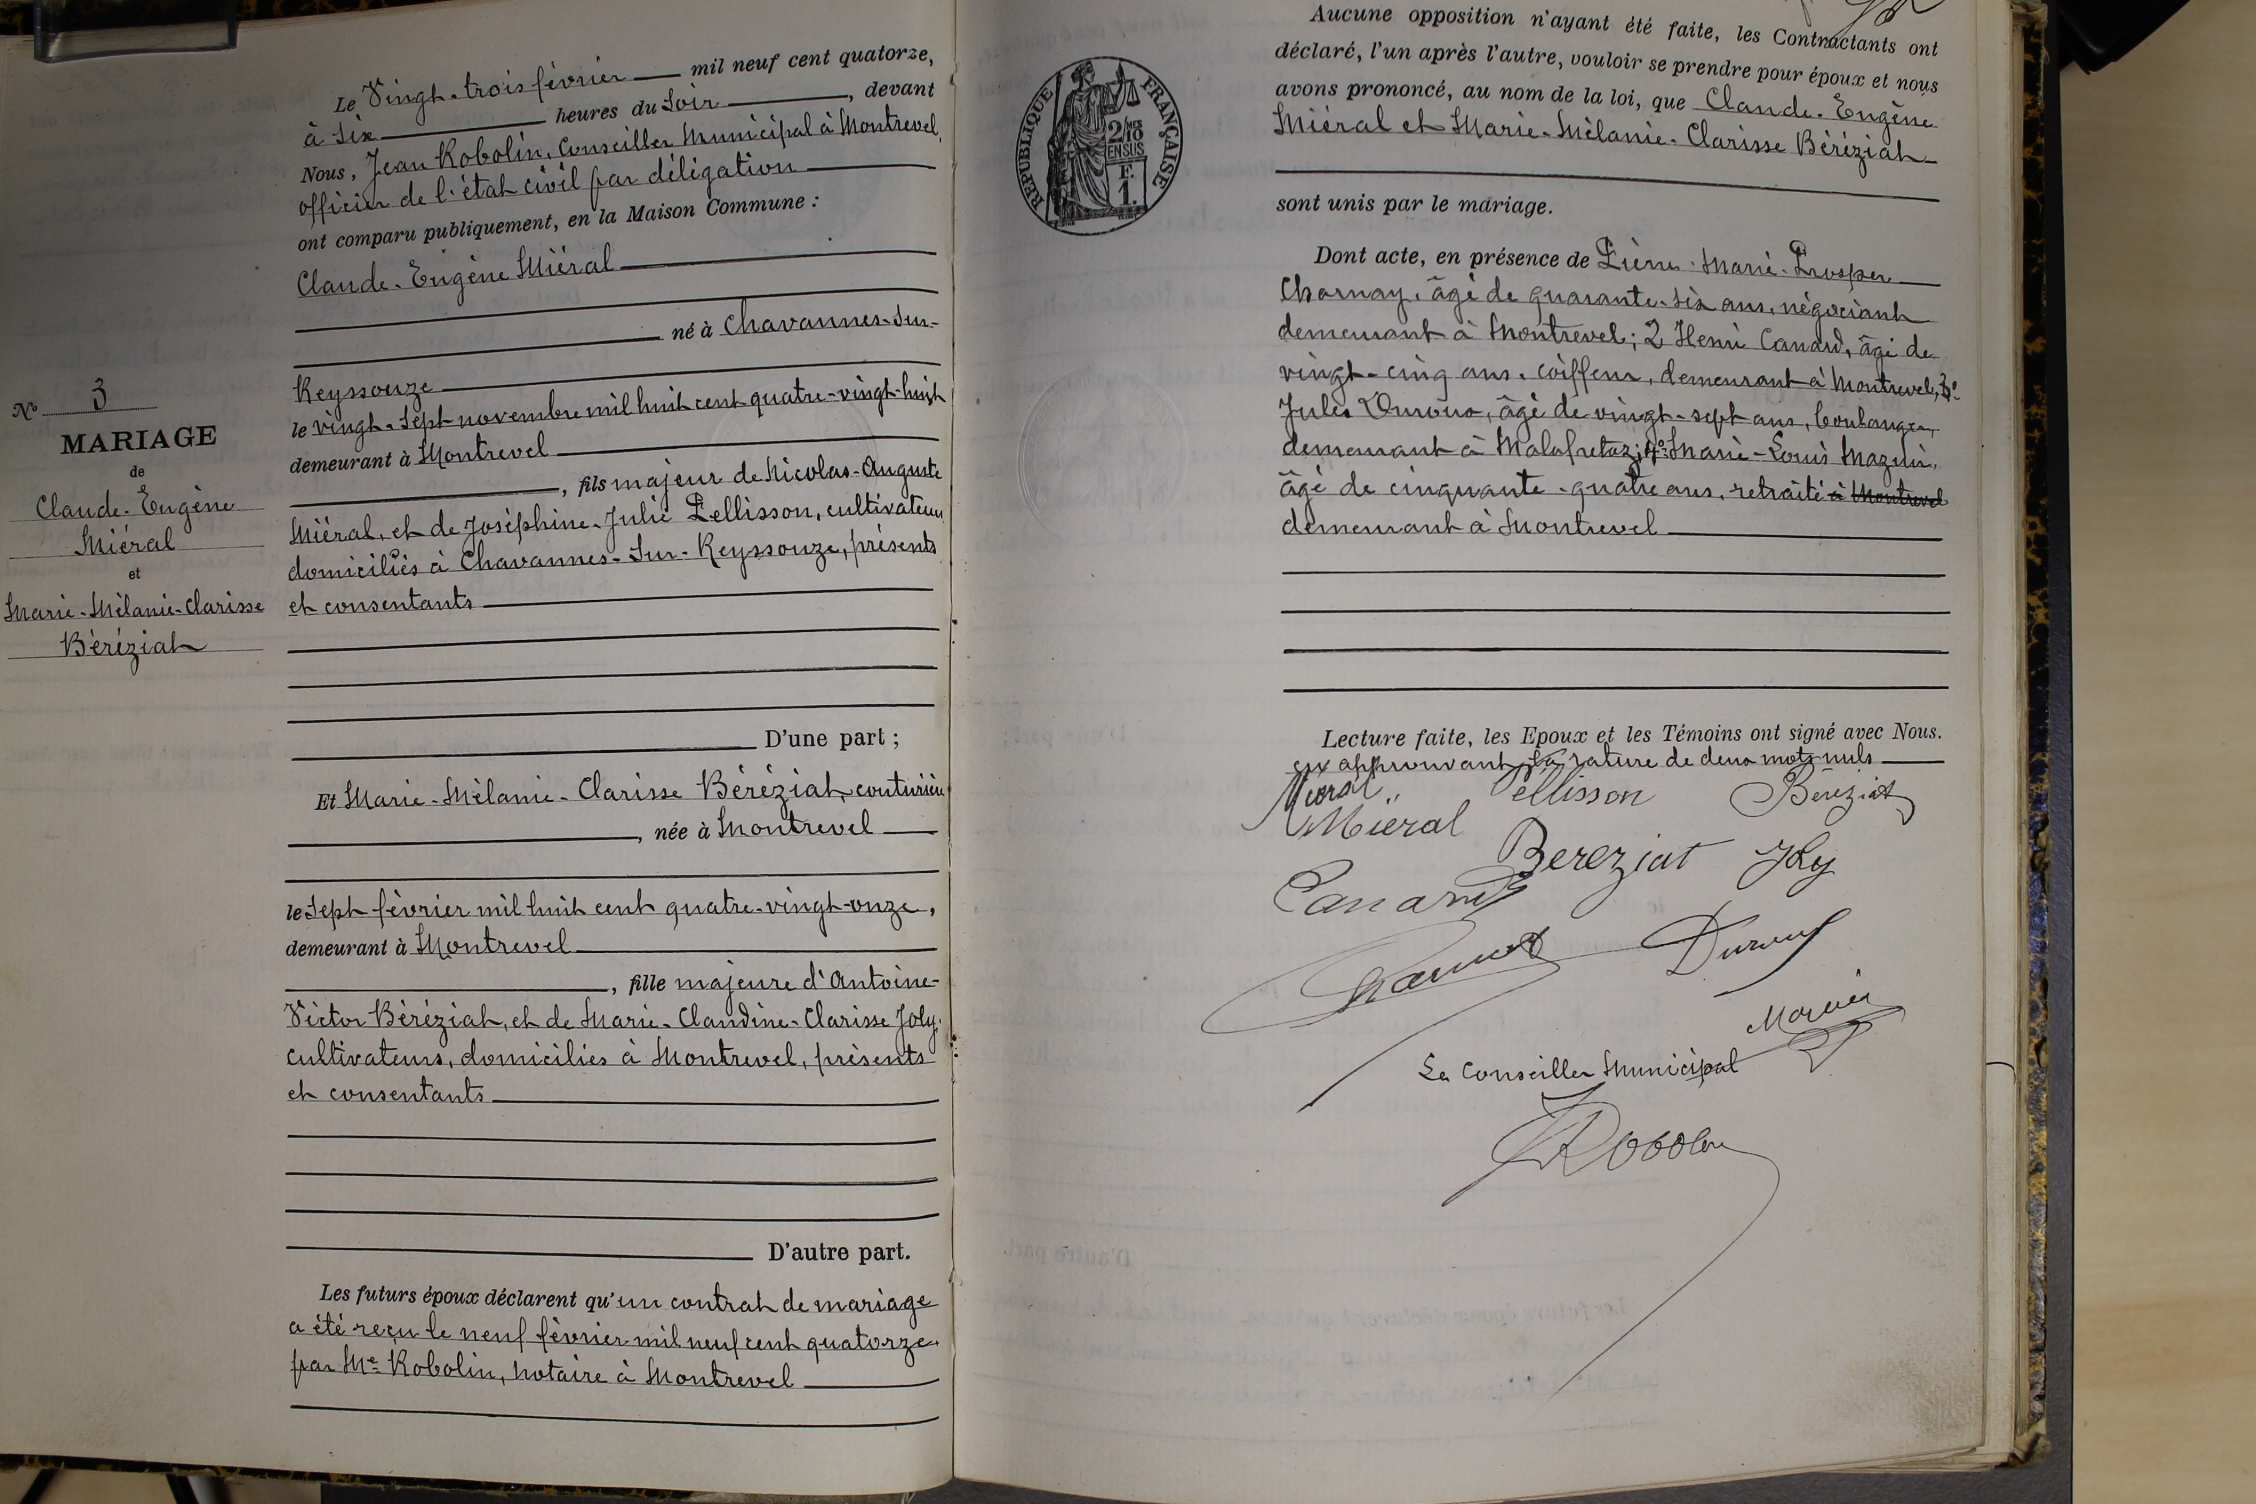 Le Vingt-trois février mil neuf cent quatorze,
à six heures du Soir, devant
Nous, Jean Robolin, Conseiller Municipal à Montrevel,
officier de l'état civil par délégation
ont comparu publiquement, en la Maison Commune :
Claude-Eugène Miéral
né à Chavannes-sur-
Reyssouze
le vingt-sept novembre mil huit cent quatre-vingt-huit
demeurant à Montrevel
, fils majeur de Nicolas-Auguste
Miéral, et de Joséphine-Julie Pellisson, cultivateurs
domiciliés à Chavannes-sur-Reyssouze, présents
et consentants
D'une part ;
Et Marie-Mélanie-Clarisse Béréziat, couturière
, née à Montrevel
le sept février mil huit cent quatre-vingt-onze,
demeurant à Montrevel
, fille majeure d'Antoine-
Victor Béréziat, et de Marie-Claudine-Clarisse Joly,
cultivateurs, domiciliés à Montrevel, présents
et consentants
D'autre part.
Les futurs époux déclarent qu'un contrat de mariage
a été reçu le neuf février mil neuf cent quatorze,
par Me Robolin, notaire à Montrevel
No 3
MARIAGE
de
Claude-Eugène
Miéral
et
Marie-Mélanie-Clarisse
Béréziat
Aucune opposition n'ayant été faite, les Contractants ont
déclaré, l'un après l'autre, vouloir se prendre pour époux et nous
avons prononcé, au nom de la loi, que Claude-Eugène
Miéral et Marie-Mélanie-Clarisse Béréziat
sont unis par le mariage.
RÉPUBLIQUE FRANÇAISE
2/10
EN SUS
F.
1.
Dont acte, en présence de Pierre-Marie-Prosper
Charnay, âgé de quarante-six ans, négociant
demeurant à Montrevel ; 2 Henri Canard, âgé de
vingt-cinq ans, coiffeur, demeurant à Montrevel, 3°
Jules Duroux, âgé de vingt-sept ans, boulanger,
demeurant à Malafretaz ; 4° Marie-Louis Mazuir,
âgé de cinquante-quatre ans, retraité à Montrevel
demeurant à Montrevel
Lecture faite, les Epoux et les Témoins ont signé avec Nous.
en approuvant la rature de deux mots nuls
Miéral Pellisson Béréziat
Miéral
Bereziat Joly
Canard
Duroux
Le Conseiller Municipal
Robolin